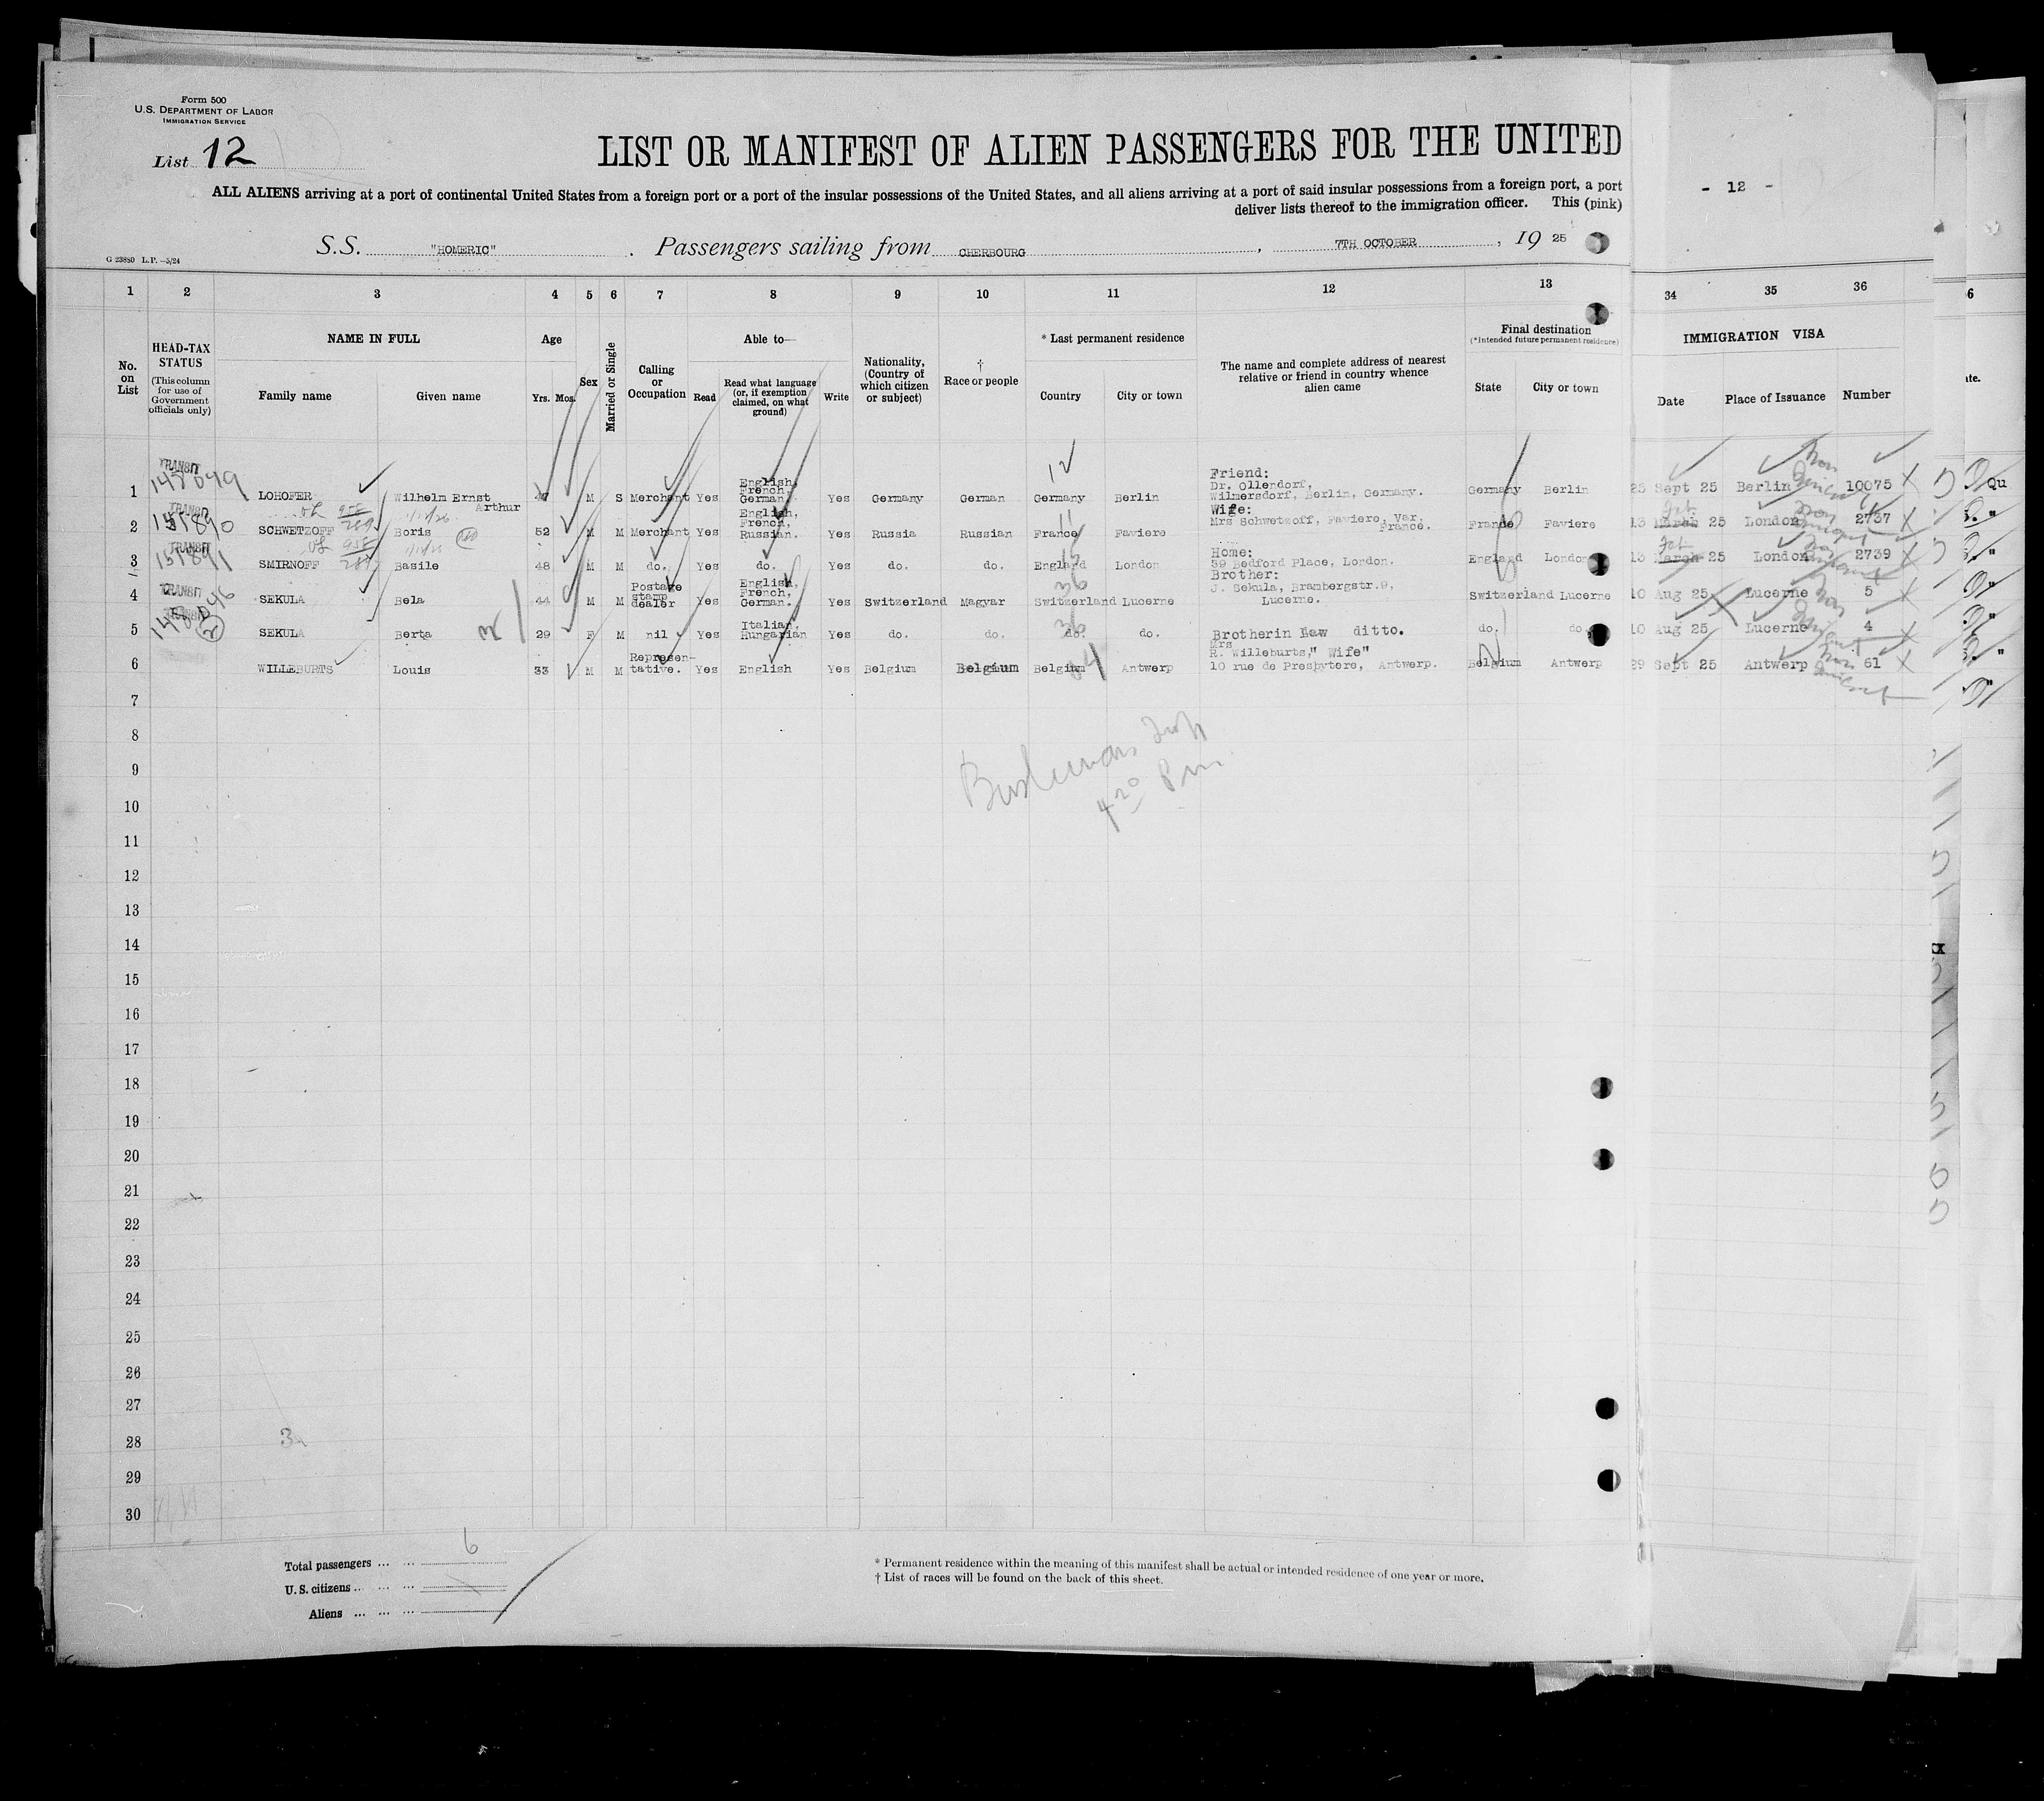 Form 500
U.S. DEPARTMENT OF LABOR
IMMIGRATION SERVICE
List 12
LIST OR MANIFEST OF ALIEN PASSENGERS FOR THE UNITED
- 12 -
ALL ALIENS arriving at a port of continental United States from a foreign port or a port of the insular possessions of the United States, and all aliens arriving at a port of said insular possessions from a foreign port, a port
deliver lists thereof to the immigration officer. This (pink)
S.S. "HOMERIC". Passengers sailing from CHERBOURG, 7TH OCTOBER, 1925
G 23880 L.P. —5/24
1 2 3 4 5 6 7 8 9 10 11 12 13 34 35 36
No. on List
HEAD-TAX STATUS
(This column for use of Government officials only)
NAME IN FULL
Family name Given name
Age
Yrs. Mos.
Sex
Married or Single
Calling or Occupation
Able to—
Read Read what language (or, if exemption claimed, on what ground) Write
Nationality, (Country of which citizen or subject)
† Race or people
* Last permanent residence
Country City or town
The name and complete address of nearest relative or friend in country whence alien came
Final destination
(*Intended future permanent residence)
State City or town
IMMIGRATION VISA
Date Place of Issuance Number
1 TRANSIT LOHOFER Wilhelm Ernst Arthur 47 M S Merchant Yes English, French, German. Yes Germany German Germany Berlin Friend: Dr. Ollendorf, Wilmersdorf, Berlin, Germany. Germany Berlin 25 Sept 25 Berlin 10075
2 TRANSIT SCHWETZOFF Boris 52 M M Merchant Yes English, French, Russian. Yes Russia Russian France Faviere Wife: Mrs Schwetzoff, Faviere, Var, France. France Faviere 13 March Oct 25 London 2737
3 TRANSIT 151891 SMIRNOFF Basile 48 M M do. Yes do. Yes do. do. England London Home: 59 Bedford Place, London. England London 13 March Oct 25 London 2739
4 TRANSIT SEKULA Bela 44 M M Postage stamp dealer Yes English, French, German. Yes Switzerland Magyar Switzerland Lucerne Brother: J. Sekula, Brambergstr.9, Lucerne. Switzerland Lucerne 10 Aug 25 Lucerne 5
5 SEKULA Berta 29 F M nil Yes Italian, Hungarian Yes do. do. do. do. Brotherin Law ditto. do. do. 10 Aug 25 Lucerne 4
6 WILLEBURTS Louis 33 M M Represen-tative. Yes English Yes Belgium Belgium Belgium Antwerp Mrs R. Willeburts," Wife" 10 rue de Presbytere, Antwerp. Belgium Antwerp 29 Sept 25 Antwerp 61
7
8
9
10
11
12
13
14
15
16
17
18
19
20
21
22
23
24
25
26
27
28
29
30
4 20 Pm
Total passengers ... ... 6
U.S. citizens ... ... ...
Aliens ... ... ...
* Permanent residence within the meaning of this manifest shall be actual or intended residence of one year or more.
† List of races will be found on the back of this sheet.